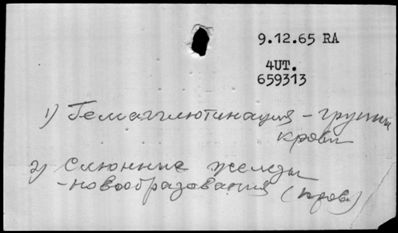 9.12.65 RA
4UT.
659313
1) Гемагглютинация - группы
крови
2) Слюнные железы
- новообразования (кровь)